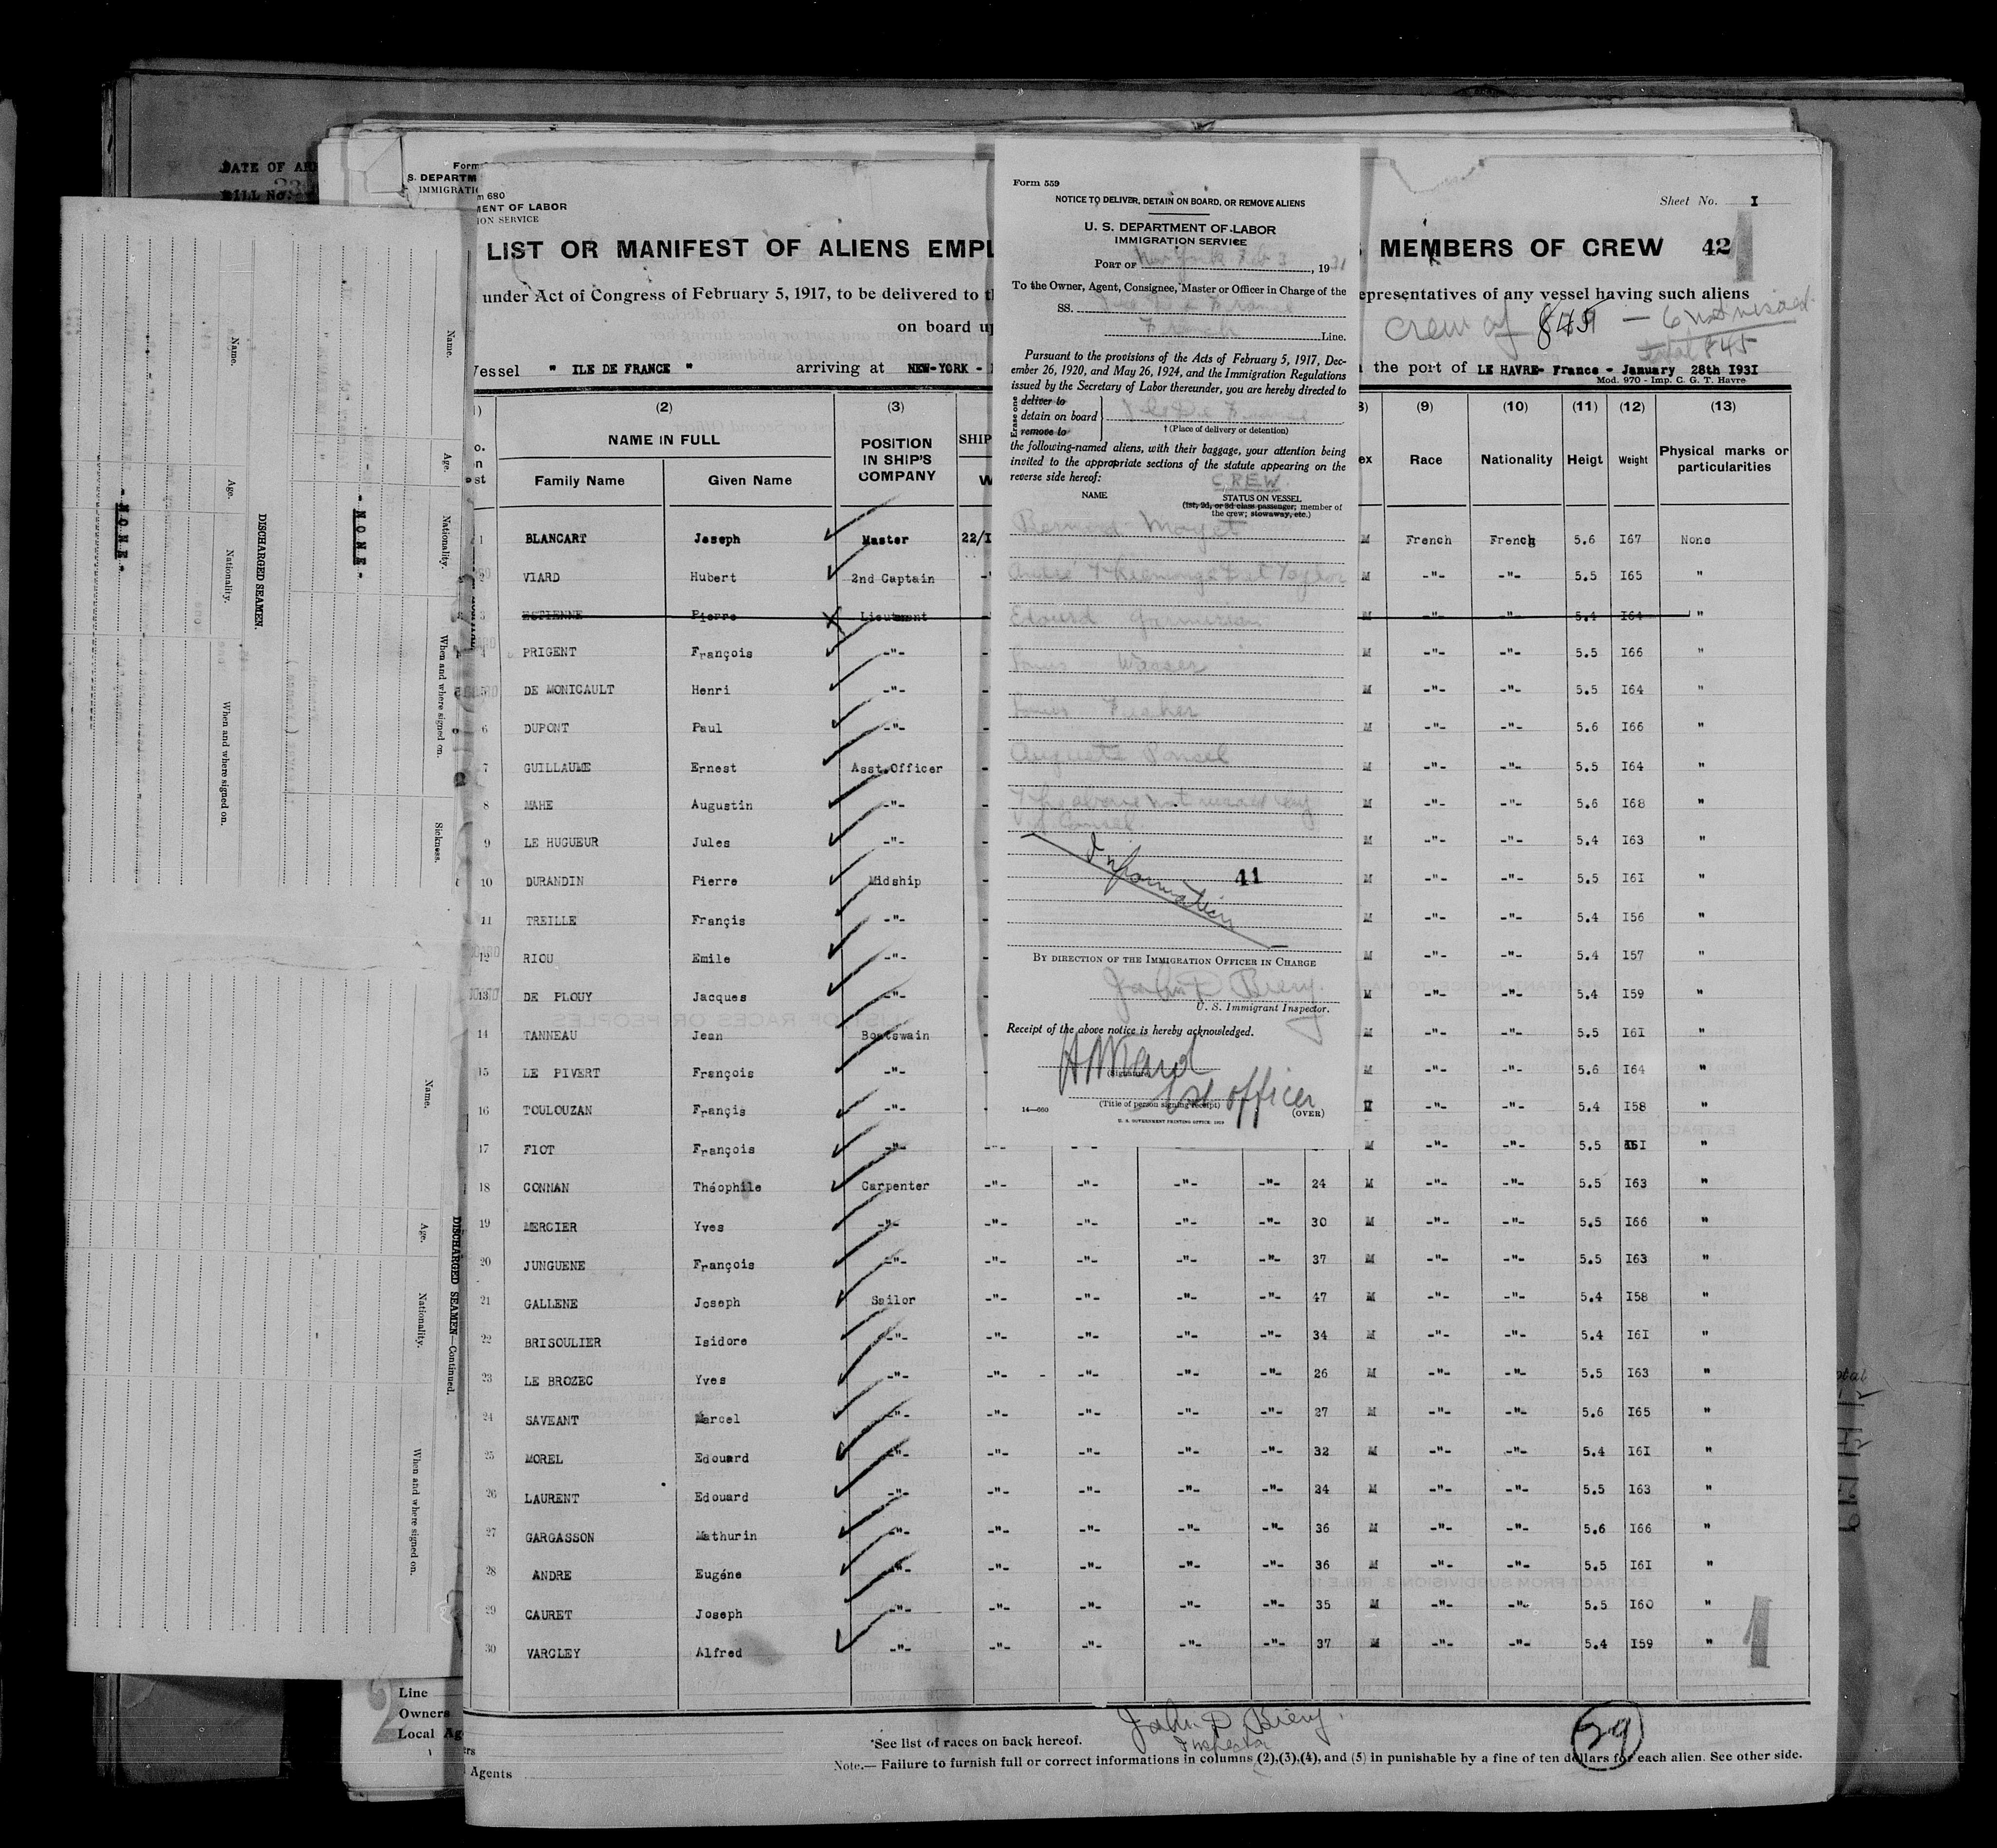 DATE OF AR
BILL No.
Form
S. DEPARTM
IMMIGRATI
m 680
MENT OF LABOR
ION SERVICE
Sheet No. I
LIST OR MANIFEST OF ALIENS EMPL
MEMBERS OF CREW 42
under Act of Congress of February 5, 1917, to be delivered to t
epresentatives of any vessel having such aliens
on board u
crew of 849 — 6 not visaed
total 845
Vessel " ILE DE FRANCE " arriving at NEW-YORK -
the port of LE HAVRE- France - January 28th I93I
Mod. 970 - Imp. C. G. T. Havre
Form 559
NOTICE TO DELIVER, DETAIN ON BOARD, OR REMOVE ALIENS
U. S. DEPARTMENT OF LABOR
IMMIGRATION SERVICE
PORT OF New York Feb 3, 1931
To the Owner, Agent, Consignee, Master or Officer in Charge of the
SS. France
French Line.
Pursuant to the provisions of the Acts of February 5, 1917, Dec-
ember 26, 1920, and May 26, 1924, and the Immigration Regulations
issued by the Secretary of Labor thereunder, you are hereby directed to
Erase one
deliver to
detain on board
remove to
Ile De France
† (Place of delivery or detention)
the following-named aliens, with their baggage, your attention being
invited to the appropriate sections of the statute appearing on the
reverse side hereof:
CREW.
NAME
STATUS ON VESSEL
(1st, 2d, or 3d class passenger; member of
the crew; stowaway, etc.)
Bernard Moyet
André
Edourd
Louis Wasser
Louis Fischer
Auguste Ponsel
The above not visaed by
Consul
Information
41
BY DIRECTION OF THE IMMIGRATION OFFICER IN CHARGE
John P Biery.
U. S. Immigrant Inspector.
Receipt of the above notice is hereby acknowledged.
(Signature)
officer
(Title of person signing receipt)
14—660
(OVER)
U. S. GOVERNMENT PRINTING OFFICE
(2) (3) (9) (10) (11) (12) (13)
NAME IN FULL
Family Name Given Name
POSITION IN SHIP'S COMPANY
SHIP
ex Race Nationality Heigt Weight Physical marks or particularities
1 BLANCART Joseph Master 22/I M French French 5.6 I67 None
2 VIARD Hubert 2nd Captain M -"- -"- 5.5 I65 "
3 ESTIENNE Pierre Lieutmant M -"- -"- 5.4 I64 "
4 PRIGENT François -"- M -"- -"- 5.5 I66 "
5 DE MONICAULT Henri -"- M -"- -"- 5.5 I64 "
6 DUPONT Paul -"- M -"- -"- 5.6 I66 "
7 GUILLAUME Ernest Asst.Officer M -"- -"- 5.5 I64 "
8 MAHE Augustin -"- M -"- -"- 5.6 I68 "
9 LE HUGUEUR Jules -"- M -"- -"- 5.4 I63 "
10 DURANDIN Pierre Midship M -"- -"- 5.5 I6I "
11 TREILLE Françis -"- M -"- -"- 5.4 I56 "
12 RIOU Emile -"- M -"- -"- 5.4 I57 "
13 DE PLOUY Jacques -"- M -"- -"- 5.4 I59 "
14 TANNEAU Jean Boatswain M -"- -"- 5.5 I6I "
15 LE PIVERT François -"- M -"- -"- 5.6 I64 "
16 TOULOUZAN Françis -"- M -"- -"- 5.4 I58 "
17 FIOT François -"- -"- -"- M -"- -"- 5.5 I6I "
18 CONNAN Théophile Carpenter -"- -"- -"- -"- 24 M -"- -"- 5.5 I63 "
19 MERCIER Yves -"- -"- -"- -"- -"- 30 M -"- -"- 5.5 I66 "
20 JUNGUENE François -"- -"- -"- -"- -"- 37 M -"- -"- 5.5 I63 "
21 GALLENE Joseph Sailor -"- -"- -"- -"- 47 M -"- -"- 5.4 I58 "
22 BRISOULIER Isidore -"- -"- -"- -"- -"- 34 M -"- -"- 5.4 I6I "
23 LE BROZEC Yves -"- -"- -"- -"- -"- 26 M -"- -"- 5.5 I63 "
24 SAVEANT Marcel -"- -"- -"- -"- -"- 27 M -"- -"- 5.6 I65 "
25 MOREL Edouard -"- -"- -"- -"- -"- 32 M -"- -"- 5.4 I6I "
26 LAURENT Edouard -"- -"- -"- -"- -"- 24 M -"- -"- 5.5 I63 "
27 GARGASSON Mathurin -"- -"- -"- -"- -"- 36 M -"- -"- 5.6 I66 "
28 ANDRE Eugéne -"- -"- -"- -"- -"- 36 M -"- -"- 5.5 I6I "
29 CAURET Joseph -"- -"- -"- -"- -"- 35 M -"- -"- 5.5 I60 "
30 VARGLEY Alfred -"- -"- -"- -"- -"- 37 M -"- -"- 5.4 I59 "
1
John P Biery.
Inspector
29
*See list of races on back hereof.
Note.— Failure to furnish full or correct informations in columns (2),(3),(4), and (5) in punishable by a fine of ten dollars for each alien. See other side.
2
Line
Owners
Local Ag
ers
Agents
Name. Age. Nationality. When and where signed on. Sickness.
- NONE -
DISCHARGED SEAMEN.
Name. Age. Nationality. When and where signed on.
- NONE -
DISCHARGED SEAMEN—Continued.
Name. Age. Nationality. When and where signed on.